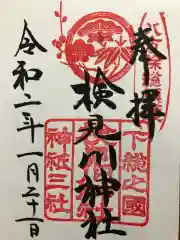 奉拝
下総之國
検見川神社
神祇三社
令和二年一月二十一日